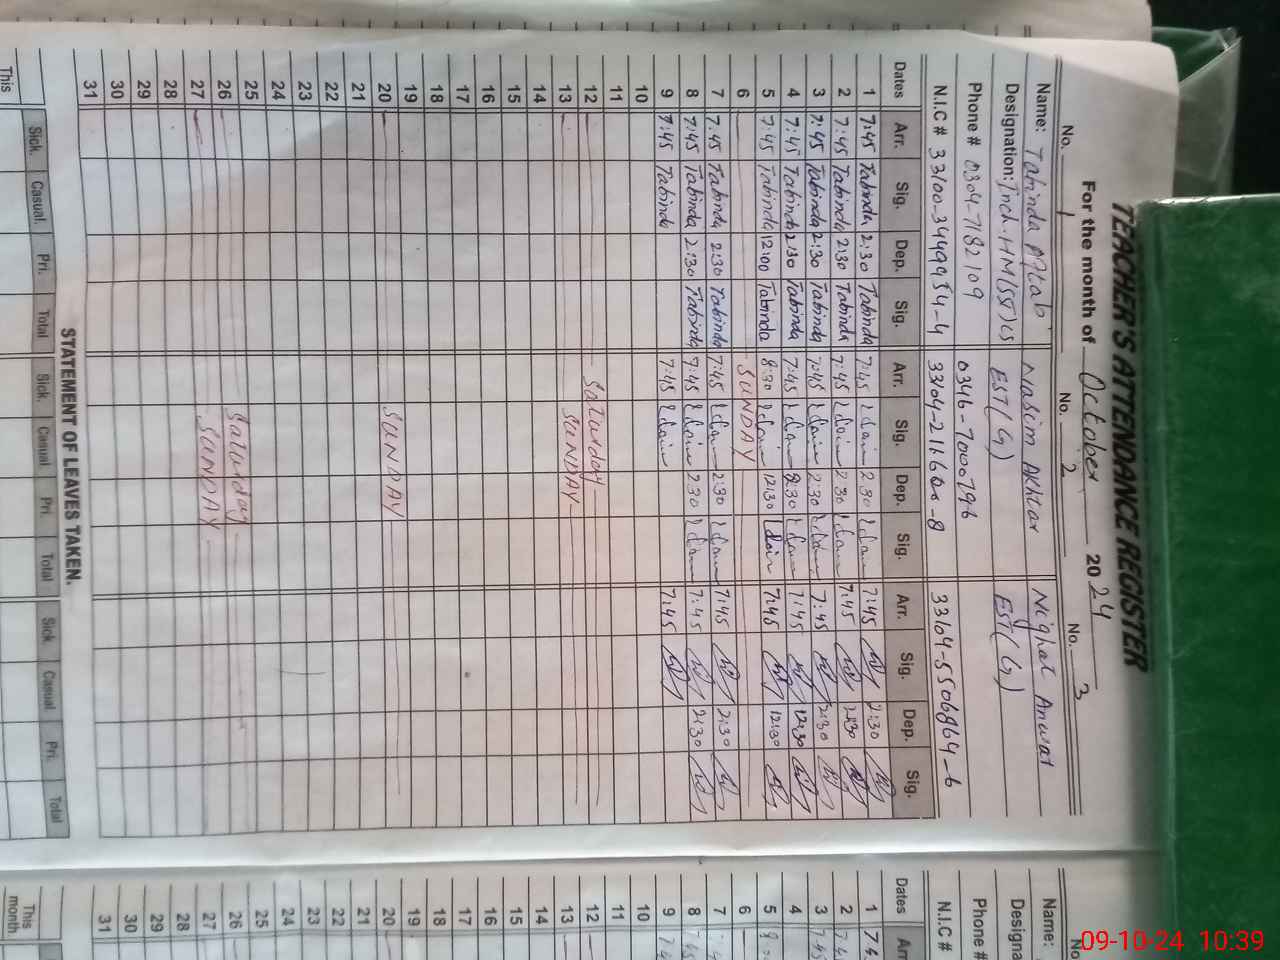 TEACHER'S ATTENDANCE REGISTER
For the month of October 2024
No. 1 No. 2 No. 3
Name: Tabinda Aftab Nasim Akhtar Nighat Anwar
Designation: Inch. HM(SST)CS EST(G) EST(G)
Phone # 0304-7182109 0346-7000796
N.I.C # 33104-5506864-6
Dates Arr. Sig. Dep. Sig. Arr. Sig. Dep. Sig. Arr. Sig. Dep. Sig.
1 7:45 Tabinda 2:30 Tabinda 7:45 2:30 7:45 2:30
2 7:45 Tabinda 2:30 Tabinda 7:45 2:30 7:45 2:30
3 7:45 Tabinda 2:30 Tabinda 7:45 2:30 7:45 2:30
4 7:45 Tabinda 2:30 Tabinda 7:45 7:45
5 7:45 Tabinda 12:00 Tabinda 8:30 12:30 7:45 12:30
6 SUNDAY
7 7:45 Tabinda 2:30 Tabinda 7:45 2:30 7:45 2:30
8 7:45 Tabinda 2:30 Tabinda 7:45 2:30 7:45 2:30
9 7:45 Tabinda 7:45 7:45
10
11
12 Saturday
13 SUNDAY
14
15
16
17
18
19
20 SUNDAY
21
22
23
24
25
26 Saturday
27 SUNDAY
28
29
30
31
STATEMENT OF LEAVES TAKEN.
Sick. Casual. Pri. Total Sick. Casual Pri. Total Sick Casual Pri. Total
This
No
Name:
Designa
Phone #
N.I.C #
Dates Arr
1
2
3
4
5
6
7
8
9
10
11
12
13
14
15
16
17
18
19
20
21
22
23
24
25
26
27
28
29
30
31
This
month
09-10-24 10:39